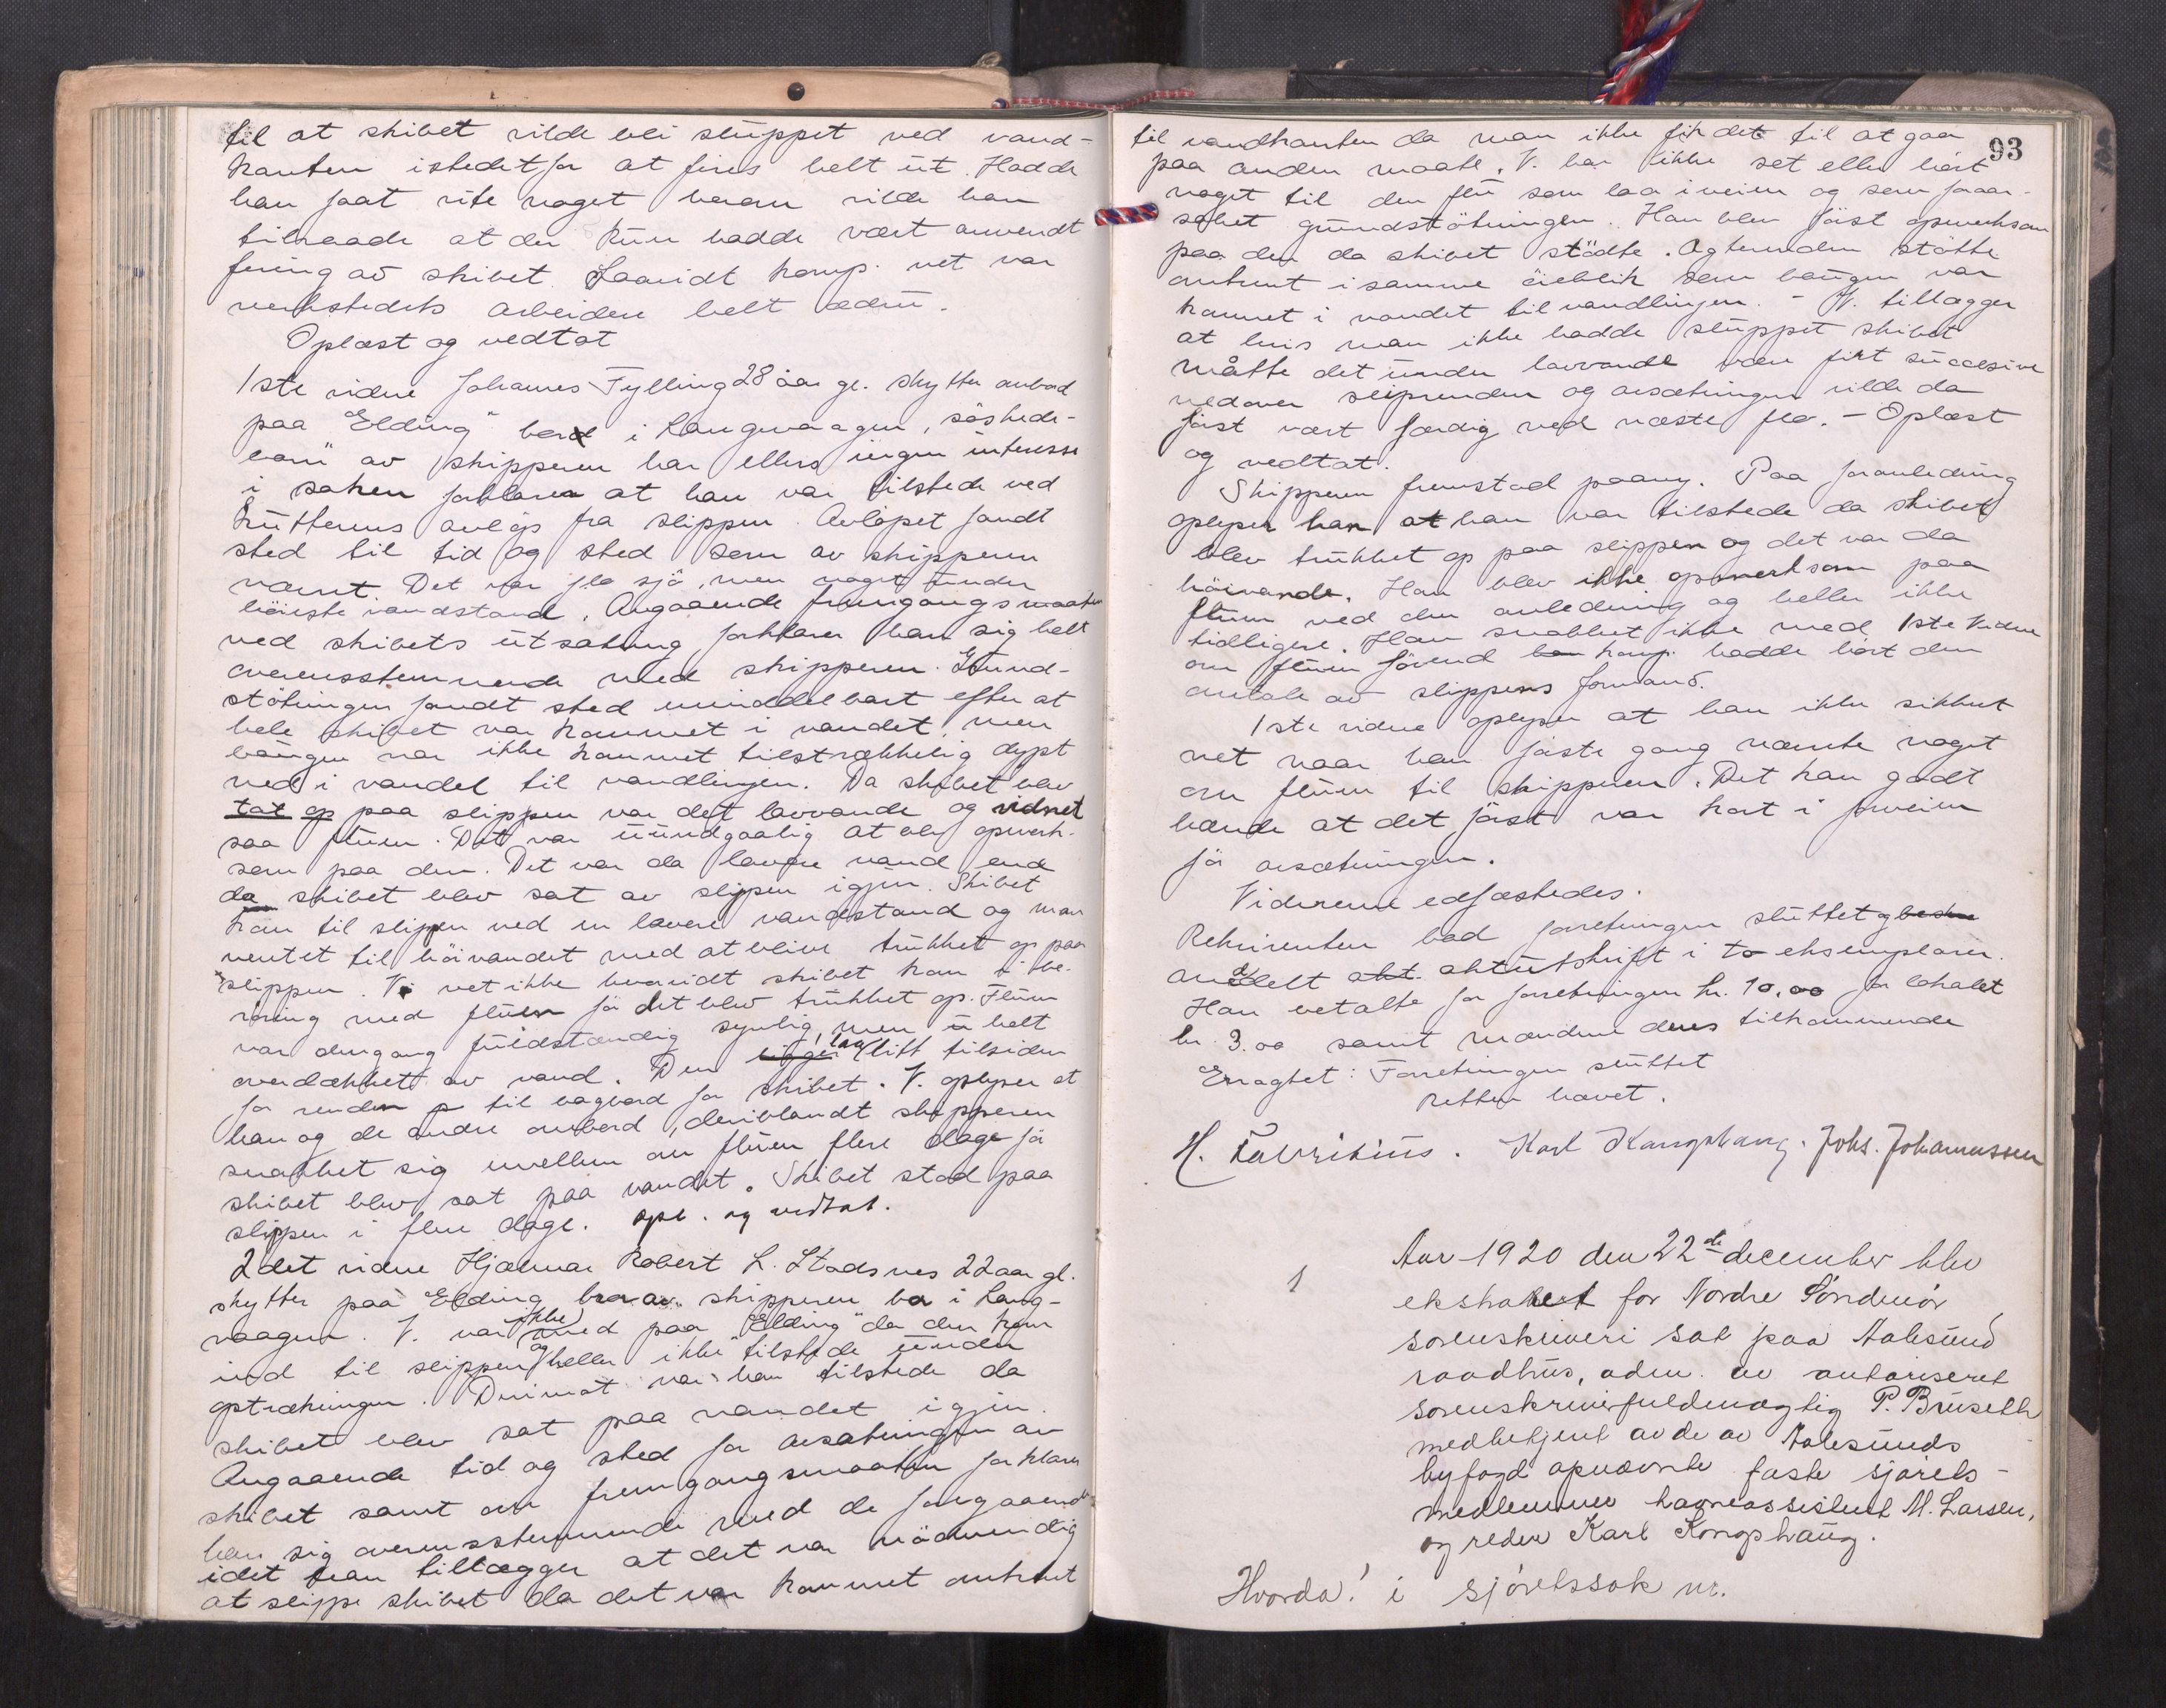 til at skibet vilde bli sluppet ved vand-
kanten istedetfor at fires helt ut. Hadde
han faat vite noget herom vilde han
tilraade at der kun hadde vært anvendt
firing av skibet. Saavidt komp. vet var
verkstedets arbeidere helt ædru.
Oplæst og vedtat
1ste vidne Johannes Tylling 28 aar gl. skytter ombord
paa "Elding" bor i Langevaagen, söskende-
barn av skipperen har ellers ingen interesse
i saken forklarer at han var tilstede ved
kutterens avlöp fra slippen. Avlöpet fandt
sted til tid og sted som av skipperen
nævnt. Det var flo sjö, men noget under
höieste vandstand. Angaaende fremgangsmaaten
ved skibets utsætning forklarer han sig helt
overensstemmende med skipperen. Grund-
stötningen fandt sted umiddelbart efter at
hele skibet var kommet i vandet, men
baugen var ikke kommet tilstrækkelig dypt
ned i vandet til vandlinjen. Da skibet blev
tat op paa slippen var det lavvande og vidnet
saa fluen. Det var uundgaalig at bli opmerk-
som paa den. Det var da lavere vand end
da skibet blev sat av slippen igjen. Skibet
kom til slippen ved en lavere vandstand og man
ventet til höivandet med at bli trukket op paa
slippen. V. vet ikke hvorvidt skibet kom i be-
röring med fluen för det blev trukket op. Fluen
var dengang fuldstændig synlig, men nu helt
overdækket av vand. Den ligger laa litt tilsiden
for renden til bagbord for skibet. V. oplyser at
han og de andre ombord, deriblandt skipperen
snakket sig imellem om fluen flere dage för
skibet blev sat paa vandet. Skibet stod paa
slippen i flere dage. Opl. og vedtat.
2det vidne Hjalmar Robert L. Stadsnes 22 aar gl.
skytter paa Elding bror av skipperen bor i Lang-
vaagen. V. var ikke med paa "Elding" da den kom
ind til slippen og heller ikke tilstede under
optrækningen. Derimot var han tilstede da
skibet blev sat paa vandet igjen.
Angaaende tid og sted for avsætningen av
skibet samt om fremgangsmaaten forklarer
han sig overensstemmende med de foregaaende
idet han tillægger at det var nödvendig
at slippe skibet da det var kommet omtrent
93
til vandkanten da man ikke fik det til at gaa
paa anden maate. V. har ikke set eller hört
noget til den flu som laa i veien og som foraar-
saket grundstötningen. Han blev först opmerksom
paa den da skibet stödte. Agterenden stötte
omtrent i samme öieblik som baugen var
kommet i vandet til vandlinjen. - V. tillægger
at hvis man ikke hadde sluppet skibet
måtte det under lavvande være firt succesive
nedover sliprenden og avsætningen vilde da
först vært færdig ved næste flo. - Oplæst
og vedtat.
Skipperen fremstod paany. Paa foranledning
oplyser han at han var tilstede da skibet
blev trukket op paa slippen og det var da
höivande. Han blev ikke opmerksom paa
fluen ved den anledning og heller ikke
tidligere. Han snakket ikke med 1ste Vidne
om fluen förend han komp. hadde hört den
omtale av slippens formand.
1ste vidne oplyser at han ikke sikkert
vet naar han förste gang nævnte noget
om fluen til skipperen. Det kan godt
hænde at det först var kort i forveien
för avsætningen.
Vidnerne edfæstedes.
Rekvirenten bad forretningen sluttet og beskre
meddelt akt. aktutskrift i to eksemplarer.
Han betalte for forretningen kr. 10.00 for lokalet
kr. 3.00 samt mændene deres tilkommende
Eragtet: Forretningen sluttet
Retten hævet.
H. Fabricius. Karl Kongshaug. Johs. Johannessen
1
Aar 1920 den 22de december blev
ekstraret for Nordre Söndmör
sorenskriveri sat paa Aalesund
raadhus, adm. av autoriseret
sorenskriverfuldmægtig P. Bruseth
medbetjent av de av Aalesunds
byfogd opnævnte faste sjörets-
medlemmer havneassistent M. Larsen,
og reder Karl Kongshaug.
Hvorda! i sjöretssak nr.